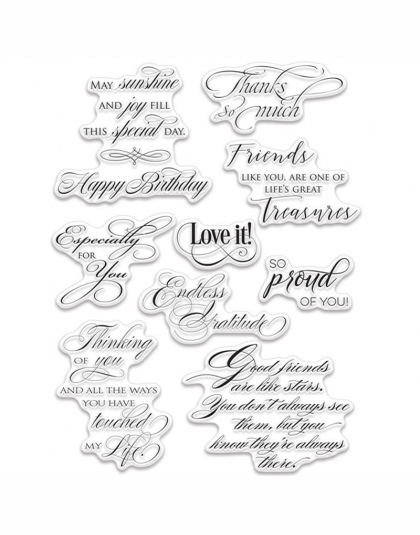 May sunshine
and joy fill
this special day.
Happy Birthday
Thanks
so much
Friends
like you, are one of
life's great
Treasures
Especially
for
You
Love it!
so
proud
of you!
Endless
Gratitude
Thinking
of you
and all the ways
you have
touched
my Life.
Good friends
are like stars.
You don't always see
them, but you
know they're always
there.